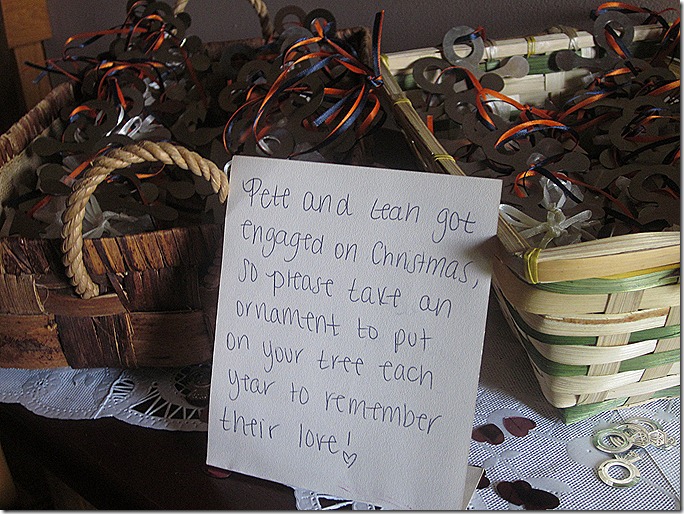 Pete and Leah got
engaged on Christmas,
so please take an
ornament to put
on your tree each
year to remember
their love!